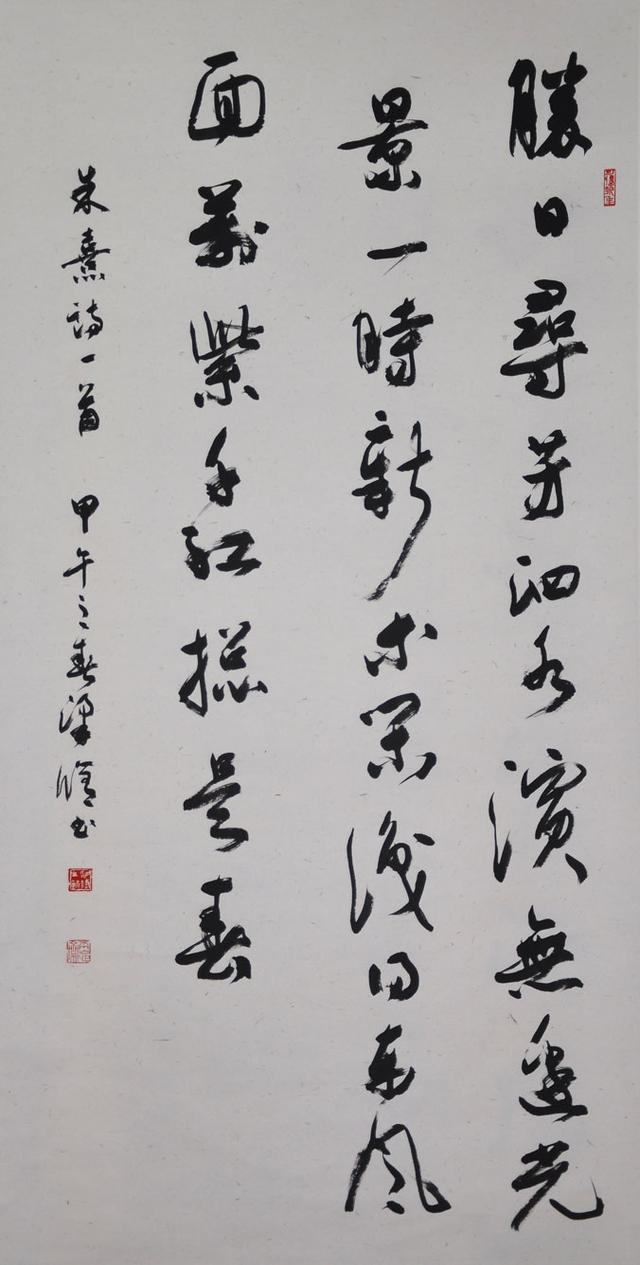 勝日尋芳泗水濱無邊光
景一時新等閑識得東風
面萬紫千紅揔是春
朱熹詩一首 甲午之春梁書